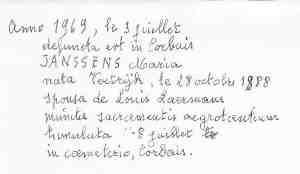 Anno 1969, le 3 juillet
defuncta est in Corbais
JANSSENS Maria
nata Tectrijk, le 28 octobr 1888
sponsa de Louis Laermans
munita sacramentis aegrotantium
tumulata 8 juillet
in coemeterio, Corbais.